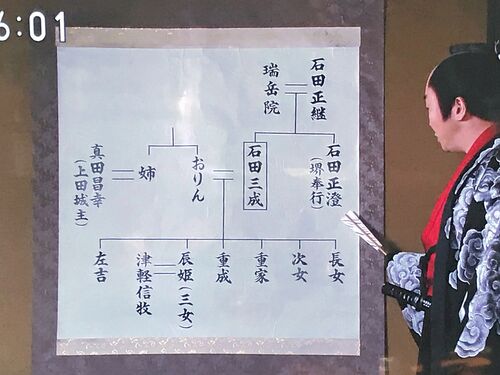 6:01
石田正継
瑞岳院
石田正澄
(堺奉行)
石田三成
おりん
姉
真田昌幸
(上田城主)
長女
次女
重家
重成
辰姫(三女)
津軽信牧
左吉